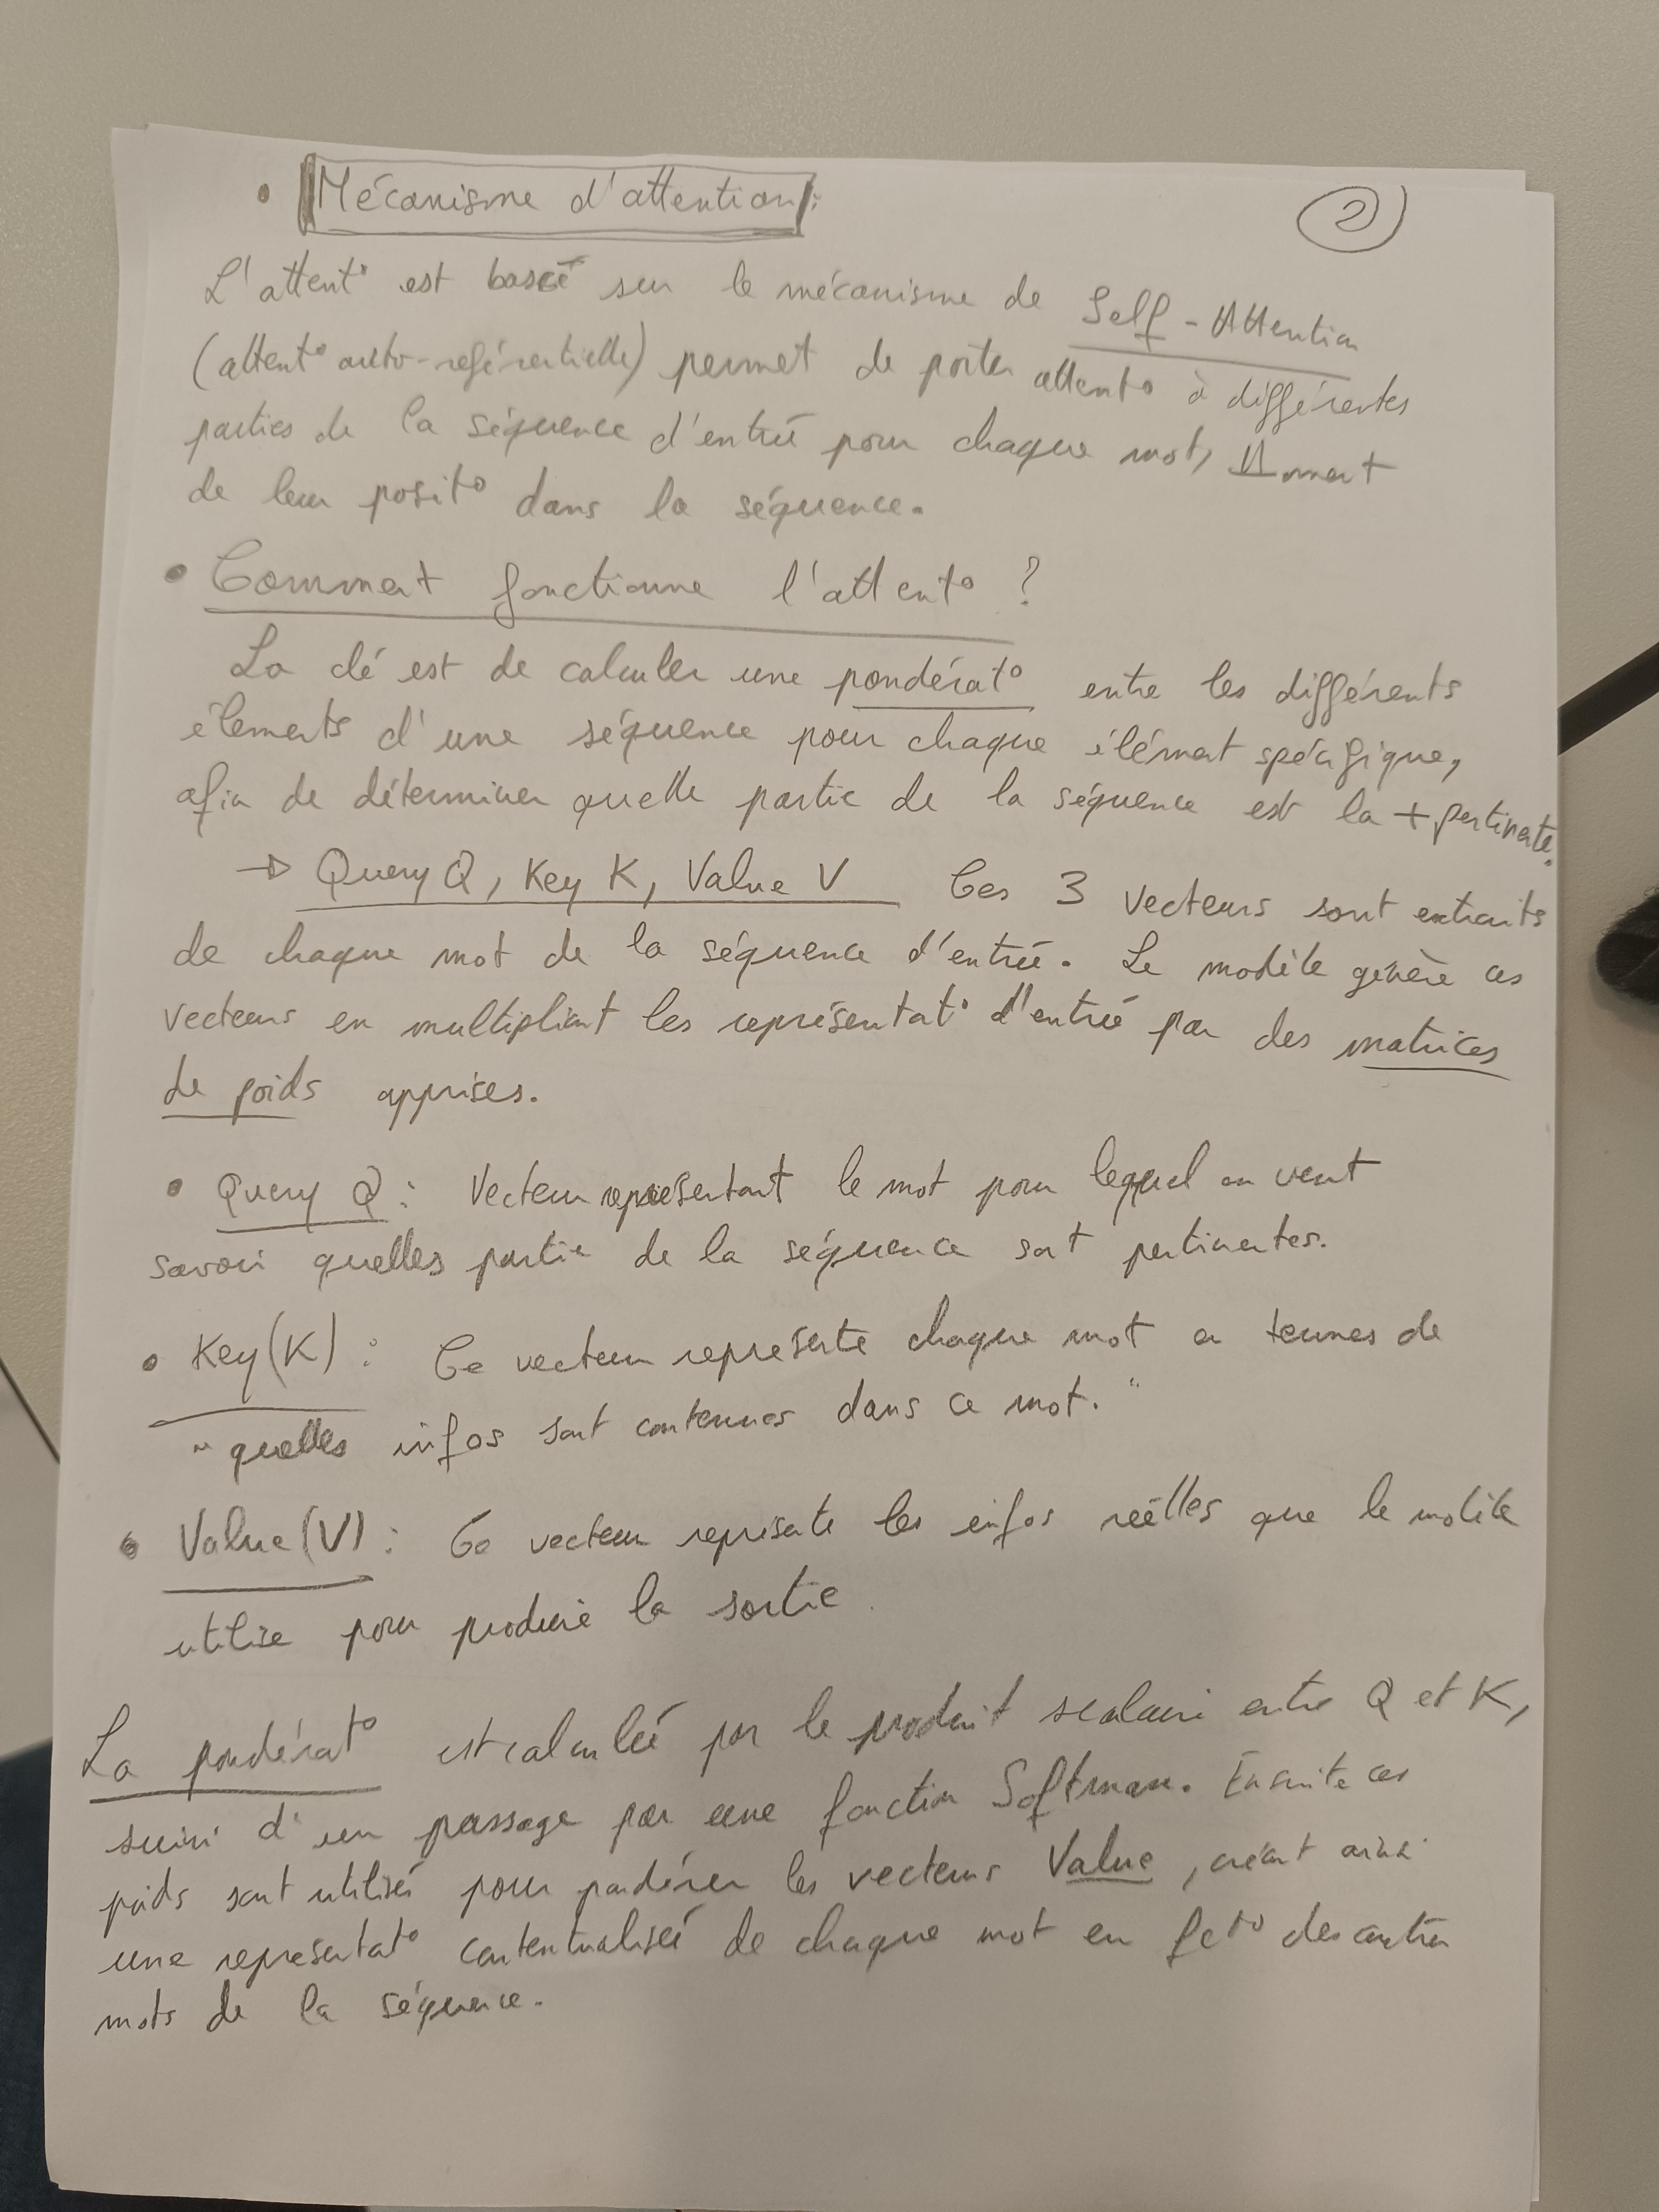 • Mécanisme d'attention :
②
L'attent° est basée sur le mécanisme de Self-Attention
(attent° auto-référentielle) permet de porter attent° à différentes
parties de la séquence d'entrée pour chaque mot, ⫫mment
de leur posit° dans la séquence.
• Comment fonctionne l'attent° ?
La clé est de calculer une pondérat° entre les différents
élements d'une séquence pour chaque élément spécifique,
afin de déterminer quelle partie de la séquence est la + pertinente.
→ Query Q, Key K, Value V Ces 3 vecteurs sont extraits
de chaque mot de la séquence d'entrée. Le modèle génère ces
vecteurs en multipliant les représentat° d'entrée par des matrices
de poids apprises.
• Query Q : Vecteur représentant le mot pour lequel on veut
savoir quelles partie de la séquence sont pertinentes.
• Key (K) : Ce vecteur représente chaque mot en termes de
"quelles infos sont contenues dans ce mot."
• Value (V) : Ce vecteur représente les infos réelles que le modèle
utilise pour produire la sortie.
La pondérat° est calculée par le produit scalaire entre Q et K,
suivi d'un passage par une fonction Softmax. Ensuite ces
poids sont utilisés pour pondérer les vecteurs Value, créant ainsi
une représentat° contextualisée de chaque mot en fct° des autres
mots de la séquence.